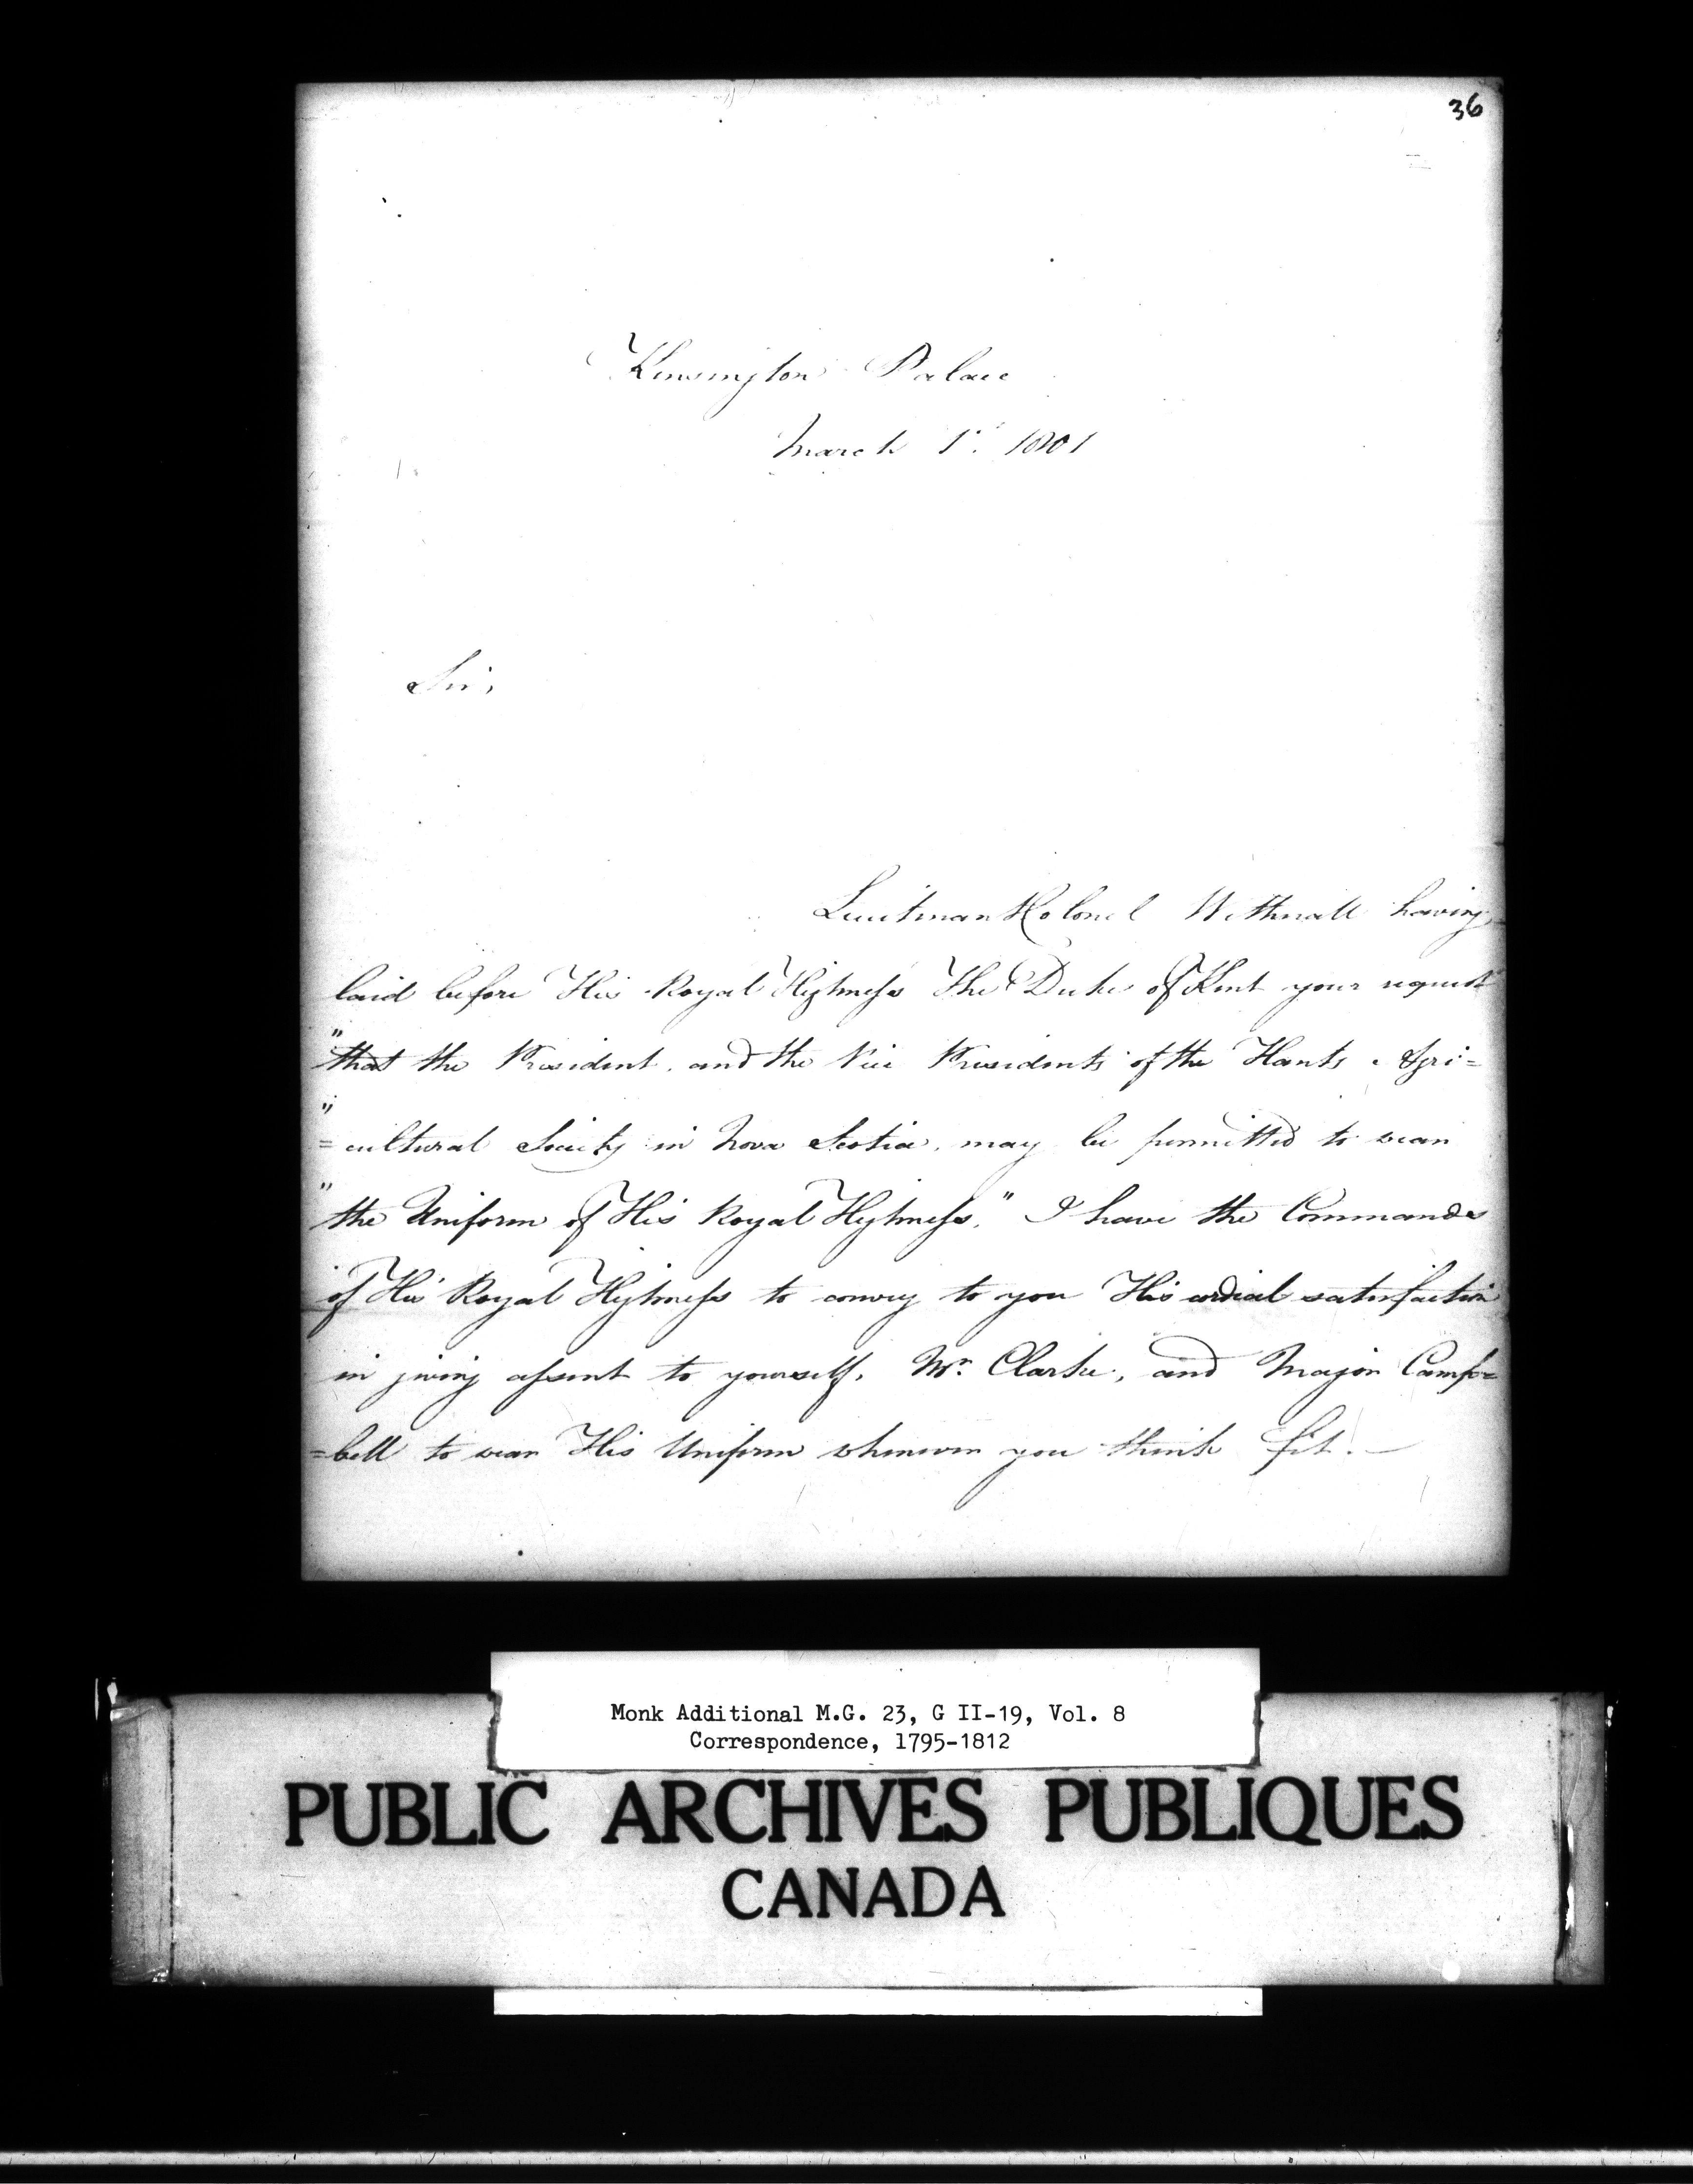 36
Kensington Palace
March 1st. 1801
Sir,
Lieutenant Colonel Wethrall having
laid before His Royal Highness The Duke of Kent your request
"that the President, and the Vice Presidents of the Hants Agri=
"=cultural Society in Nova Scotia, may be permitted to wear
"the Uniform of His Royal Highness." I have the Commands
of His Royal Highness to convey to you His cordial satisfaction
in giving assent to yourself, Mr. Clarke, and Major Camp=
=bell to wear His Uniform whenever you think fit.—
Monk Additional M.G. 23, G II-19, Vol. 8
Correspondence, 1795-1812
PUBLIC ARCHIVES PUBLIQUES
CANADA